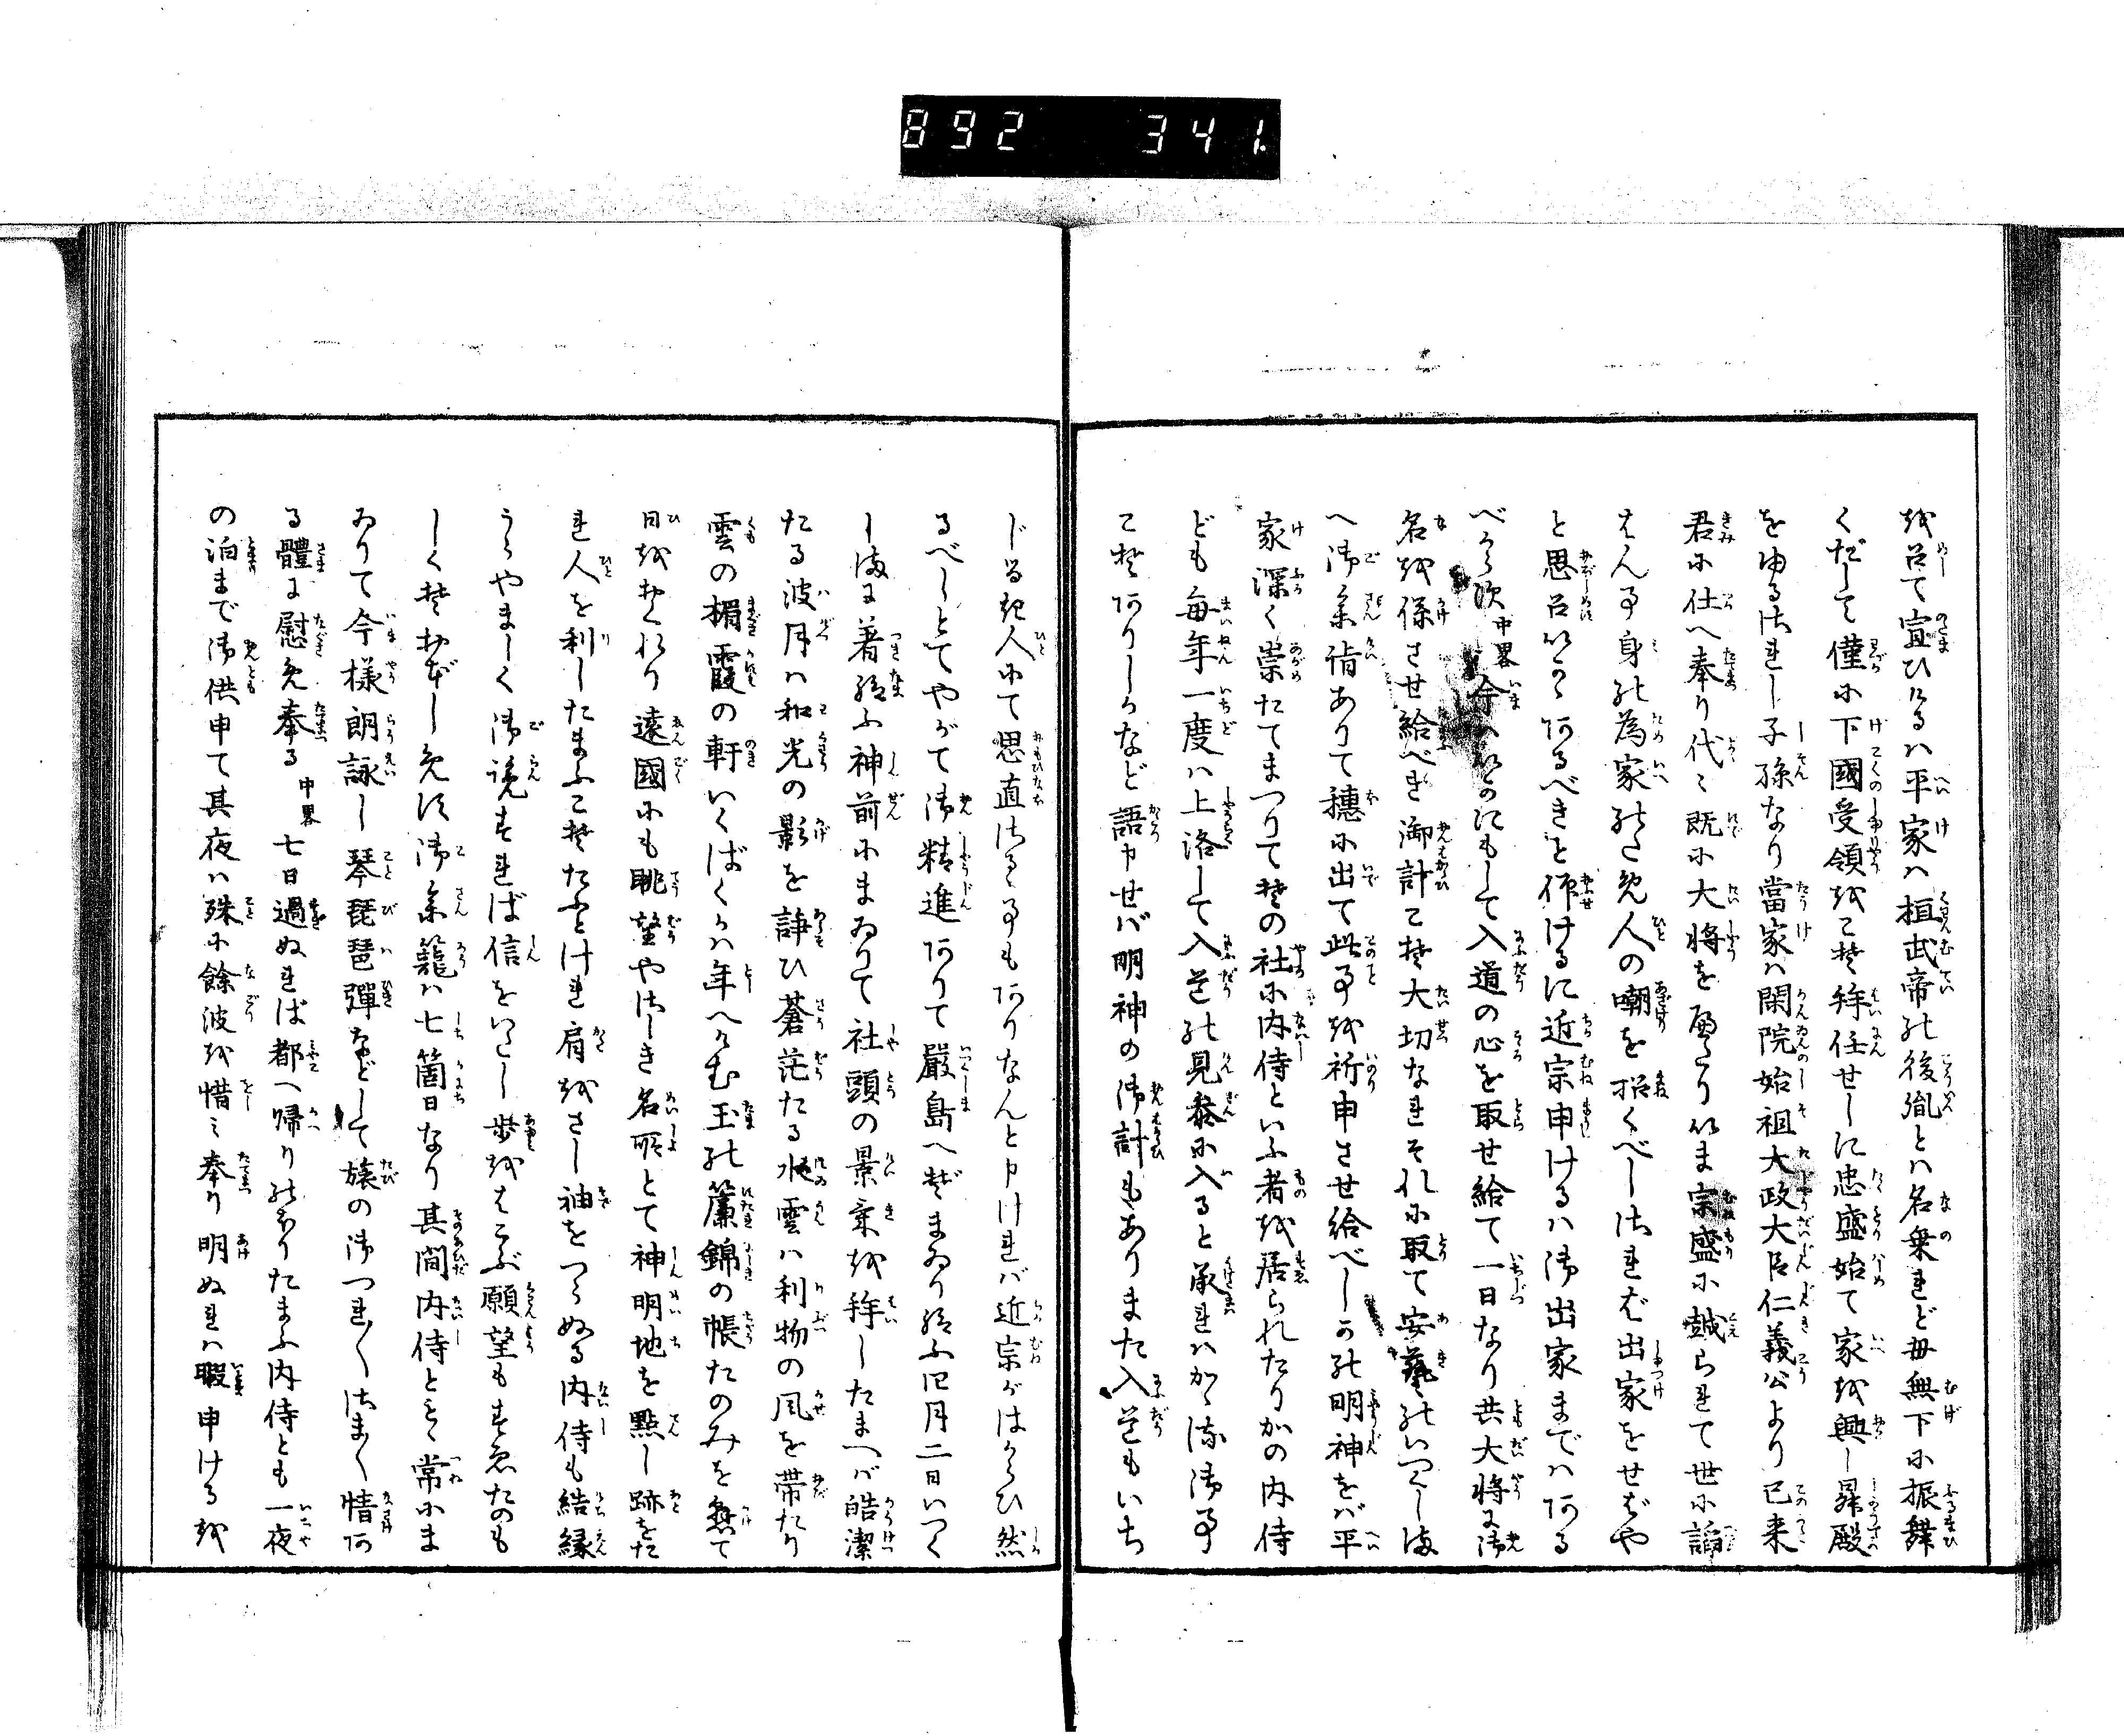 892 341.
を召て宣ひけるハ平家ハ桓武帝の後胤とハ名乗れど毋無下に振舞
くだして僅に下國受領をこそ拜任せしに忠盛始て家を興し昇殿
をゆるされし子孫なり當家ハ閑院始祖太政大臣仁義公より已来
君に仕へ奉り代々既に大将をへたりいま宗盛に越られて世に諂
はん事身の為家のため人の嘲を招くべしされバ出家をせばや
と思召いかゝあるべきと仰けるに近宗申けるハ御出家まではある
べからず中畧今ハいかにもして入道の心を取せ給て一日なり共大将に御
名を係させ給べき御計こそ大切なれそれに取て安藝のいつくしま
へ御参詣ありて穗に出て此事を祈申させ給べしかの明神をば平
家深く崇たてまつりてその社に内侍といふ者を居られたりかの内侍
ども毎年一度ハ上洛して入道の見参に入ると承れハかゝる御事
こそありしかなど語申せバ明神の御計もありまた入道もいち
じるき人にて思直さるゝ事もありなんと申けれバ近宗がはからひ然
るべしとてやがて御精進ありて嚴島へぞまゐり給ふ四月二日いつく
しまに著給ふ神前にまゐりて社頭の景氣を拜したまへバ皓潔
たる波月ハ和光の影を諍ひ蒼茫たる水雲ハ利物の風を帯たり
雲の楣霞の軒いくばくかハ年へけむ玉の簾錦の帳たのみを懸て
日をおくれり遠國にも眺望やさしき名所とて神明地を點し跡をた
れ人を利したまふこそたふとけれ肩をさし袖をつらぬる内侍も結縁
うらやましく御覧ずれば信をいたし歩をはこぶ願望もすゑたのも
しくぞおぼしめす御参籠ハ七箇日なり其間内侍とも常にま
ゐりて今様朗詠し琴琵琶彈などして旅の御つれ〴〵さま〴〵情あ
る體に慰め奉る中畧七日過ぬれば都へ帰りのぼりたまふ内侍とも一夜
の泊まで御供申て其夜ハ殊に餘波を惜み奉り明ぬれハ暇申ける越